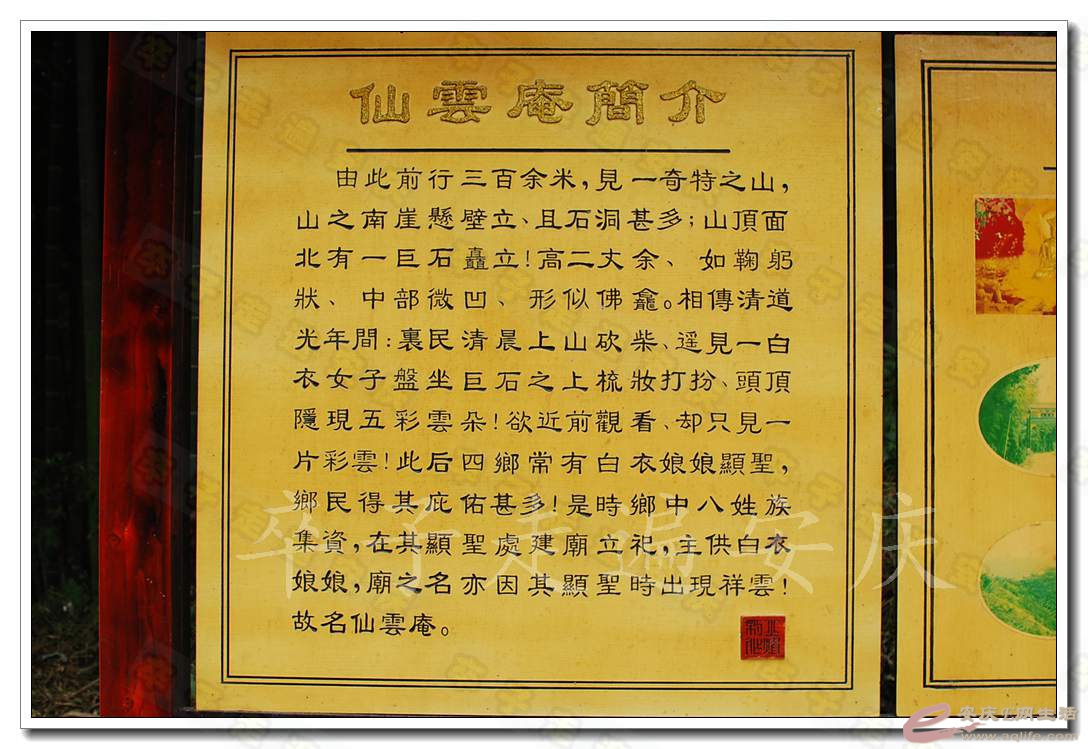 仙雲庵簡介
由此前行三百余米，見一奇特之山，
山之南崖懸壁立、且石洞甚多；山頂面
北有一巨石矗立！高二丈余、如鞠躬
狀、中部微凹、形似佛龕。相傳清道
光年間：裏民清晨上山砍柴、遥見一白
衣女子盤坐巨石之上梳妝打扮、頭頂
隱現五彩雲朵！欲近前觀看、却只見一
片彩雲！此后四鄉常有白衣娘娘顯聖，
鄉民得其庇佑甚多！是時鄉中八姓族
集資，在其顯聖處建廟立祀，主供白衣
娘娘，廟之名亦因其顯聖時出現祥雲！
故名仙雲庵。
卒子走遍安庆
安庆E网生活
www.aqlife.com